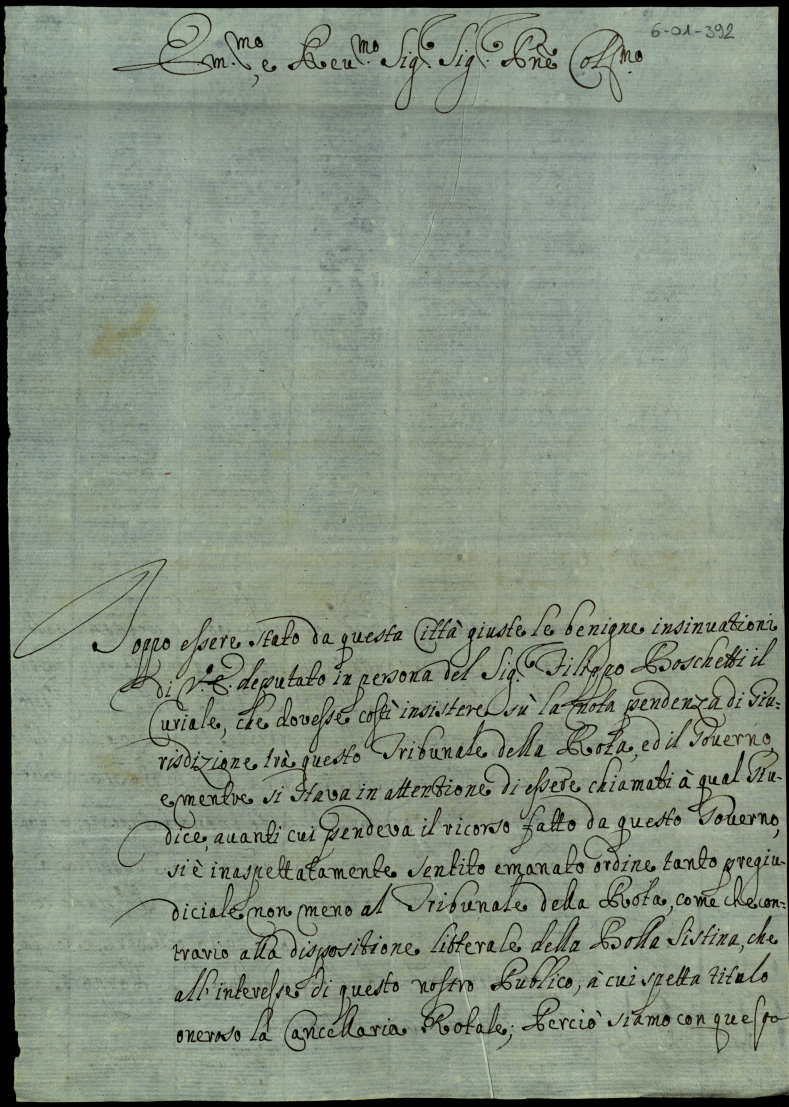 6-01-392
Em.mo, e Reu.mo Sig.r Sig.r Pñe Col.mo
Doppo essere stato da questa Città giuste le benigne insinuationi
di V.E. deputato in persona del Sig.r Filippo Boschetti il
Curiale, che dovesse costì insistere sù la nota pendenza di Giu-
risdizione trà questo Tribunale della Rota, ed il Governo,
e mentre si stava in attentione di essere chiamati à qual Giu-
dice, avanti cui pendeva il ricorso fatto da questo Governo,
si è inaspettatamente sentito emanato ordine tanto pregiu-
diciale non meno al Tribunale della Rota, come che con-
trario alla dispositione litterale della Bolla Sistina, che
all'interesse di questo nostro Publico, à cui spetta titulo
oneroso la Cancellaria Rotale; Perciò siamo con questo